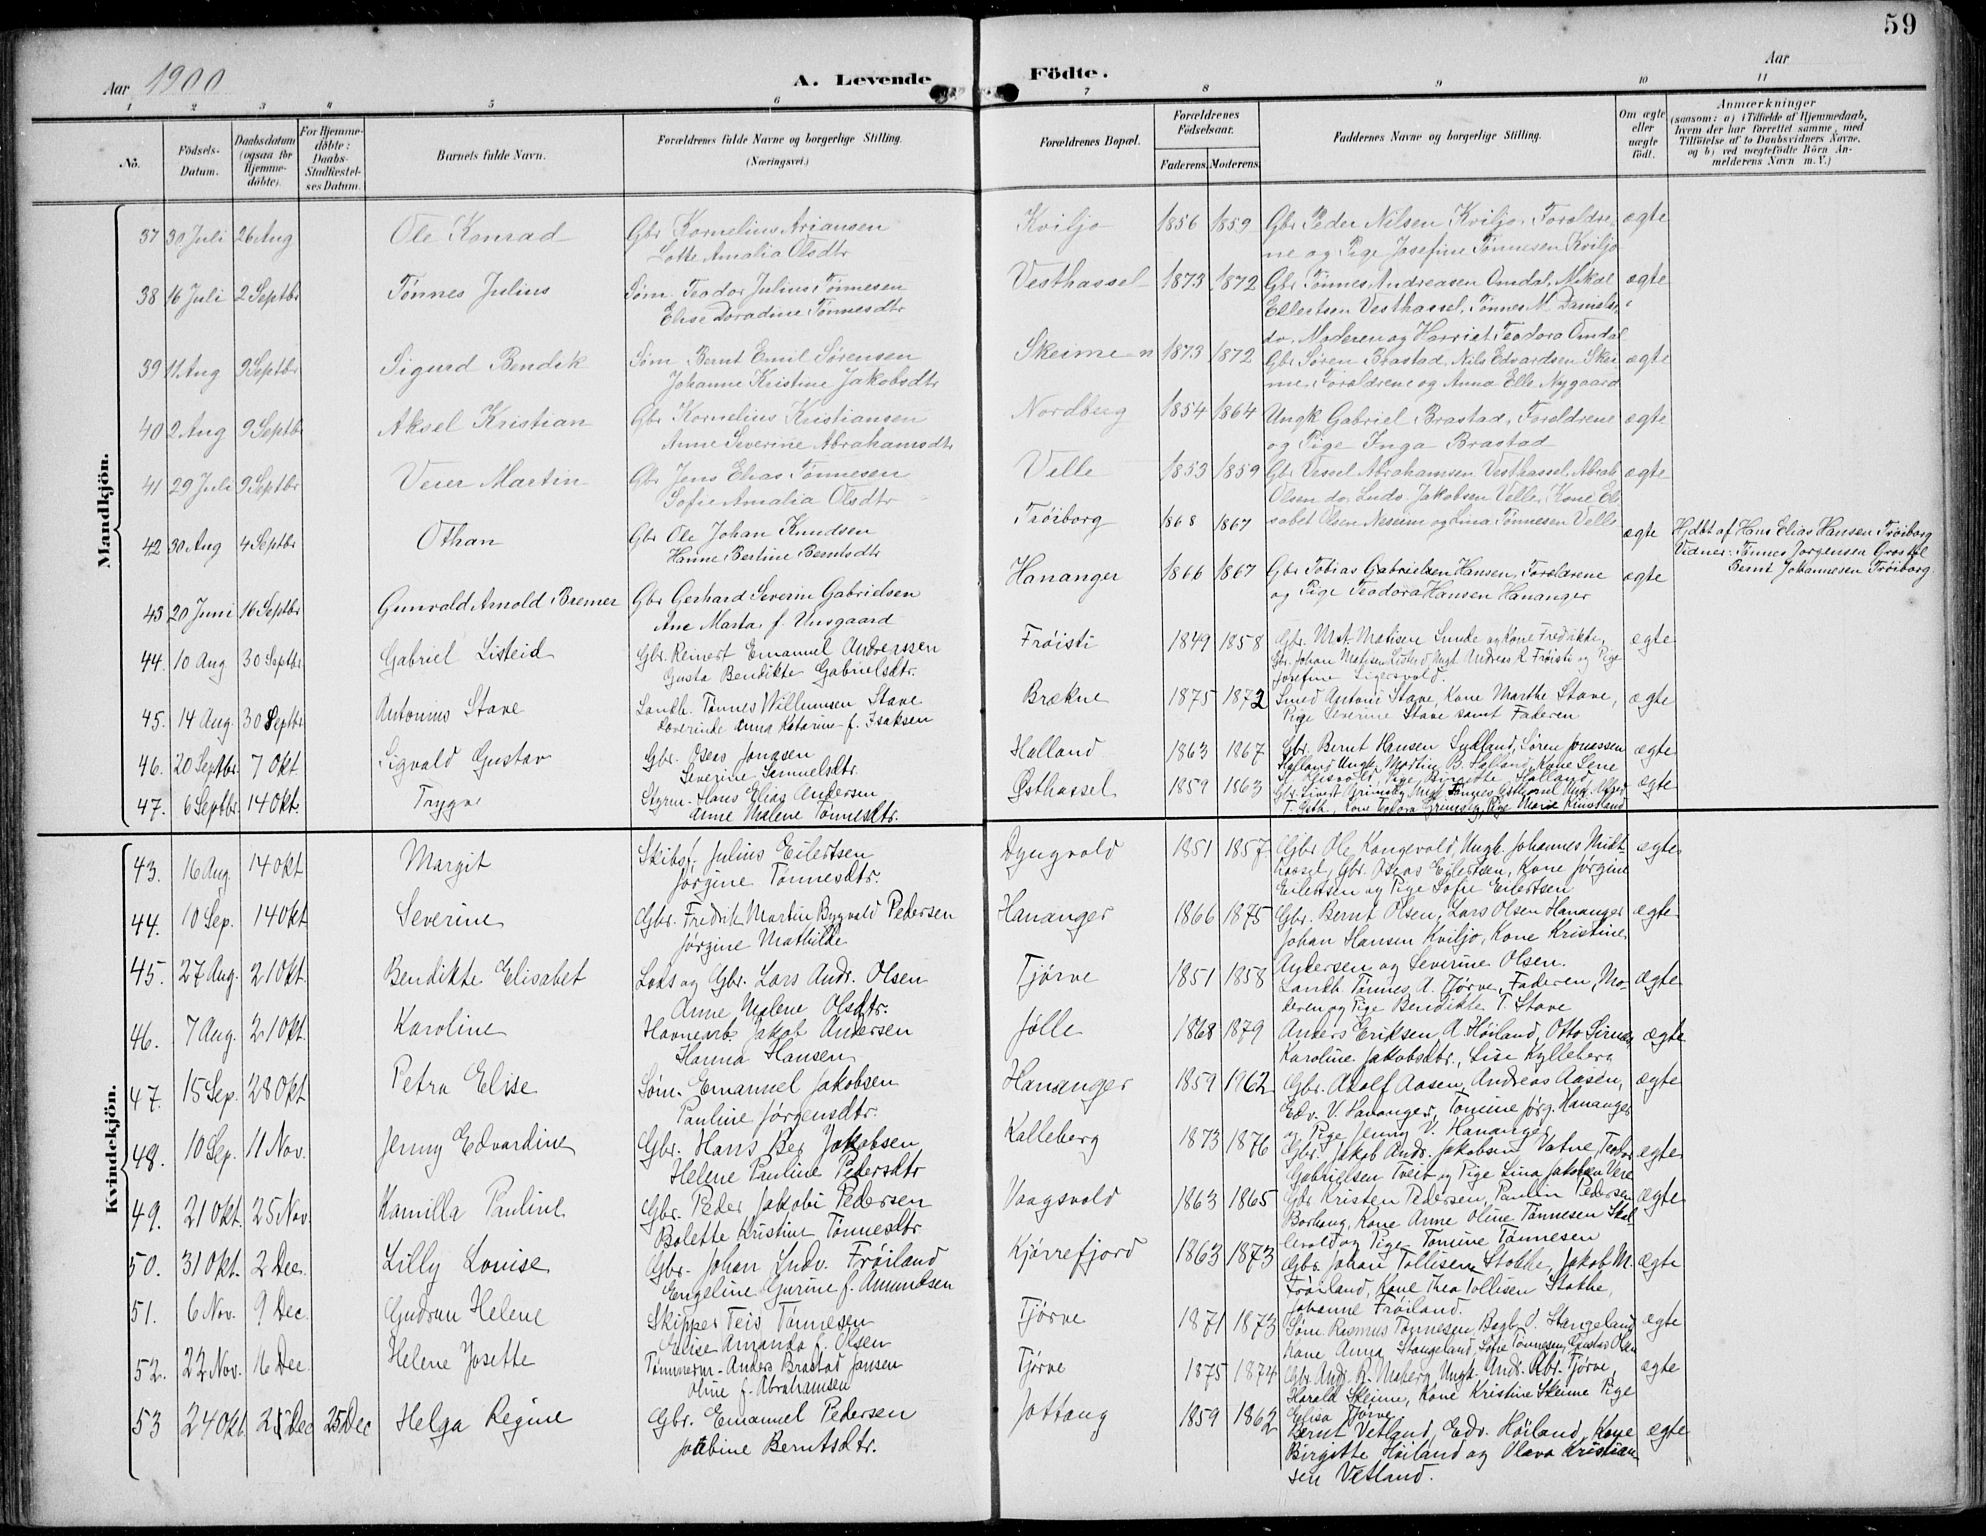 59
Aar 1900
A. Levende Födte.
Aar
1 2 3 4 5 6 7 8 9 10 11
No.
Födsels-Datum.
Daabsdatum (ogsaa for Hjemme-döbte).
For Hjemme-döbte: Daabs-Stadfæstel-ses Datum.
Barnets fulde Navn.
Forældrenes fulde Navne og borgerlige Stilling. (Næringsvei.)
Forældrenes Bopæl.
Forældrenes Födselsaar.
Faderens. Moderens.
Faddernes Navne og borgerlige Stilling.
Om ægte eller uægte født.
Anmærkninger
(saasom: a) i Tilfælde af Hjemmedaab, hvem der har forrettet samme, med Tilföielse af to Daabsvidners Navne, og b) ved uægtefödte Börn Anmelderens Navn m. V.)
Mandkjön.
37 30 Juli 26 Aug Ole Konrad Gbr. Kornelius Arjansen Kviljo 1856 1859 Gbr. Peder Nilsen Kviljo, Foroldre- ægte
Lotte Amalia Olsdtr ne og Pige Josefine Tønnesen Kviljo
38 16 Juli 2 Septbr Tønnes Julius Søm. Teodor Julius Tønnesen Vesthassel 1873 1872 Gbr Tønnes Andreasen Omdal, Mikal ægte
Elise Doradine Tønnesdtr Ellertsen Vesthassel, Tønnes M. Daniels-
do, Moderen og Harriet Teodora Omdal
39 11 Aug 9 Septbr Sigurd Bendik Søm. Bernt Emil Sørensen Skeime 1873 1872 Gbr Søren Brastad, Nils Edvardsen Skei- ægte
Johanne Kristine Jakobsdtr me, Foroldrene og Anna Elle Nygaard
40 2 Aug 9 Septbr Aksel Kristian Gbr Kornelius Kristiansen Nordberg 1854 1864 Ungk Gabriel Brastad, Foroldrene ægte
Anne Severine Abrahamsdtr og Pige Inga Brastad
41 29 Juli 9 Septbr Veier Martin Gbr Jens Elias Tønnesen Velle 1853 1859 Gbr Vessel Abrahamsen Vesthassel, Abrah ægte
Sofie Amalia Olsdtr Olsen do, Ludv Jakobsen Velle, Kone El-
sabet Olsen Neseim og Lina Tønnesen Velle
42 30 Aug 4 Septbr Othan Gbr Ole Johan Knudsen Frøiborg 1868 1867 ægte Hjdbt af Hans Elias Hansen Frøiborg
Hanne Bertine Berntsdtr Vidner: Tønnes Jørgensen
Bernt Johannesen Frøiborg
43 20 Juni 16 Septbr Gunvald Arnold Bremer Gbr Gerhard Severin Gabrielsen Hananger 1866 1867 Gbr Tobias Gabrielsen Hansen, Foroldrene ægte
Ane Marta f. Unsgaard og Pige Teodora Hansen Hananger
44. 10 Aug 30 Septbr. Gabriel Listeid Gbr. Reinert Emanuel Andreassen Frøisti 1849 1858 Gbr. Mat. Matisen Sunde og Kone Fredikke, ægte
Gusta Bendikte Gabrielsdtr. Gbr. Johan Matisen Listeid Ungk. Andreas R. Frøisti og Pige
Josefine Sigersvold.
45. 14 Aug. 30 Septbr Antonius Stave Landh. Tønnes Willumsen Stave Brækne 1875 1872 Smed Antoni Stave, Kone Marthe Stave, ægte
Anna Katarine f. Isaksen Pige Severine Stave samt Faderen
46. 20 Septbr. 7 Okt Sigvald Gustav Gbr. Oseas Jonasen Halland 1863 1867 Gbr. Bernt Hansen Sudland, Søren Jonassen ægte
Severine Samuelsdtr. Halland Ungk. Martin B. Halland, Kone Lene
Pige Birgitte Halland
47. 6 Septbr. 14 Okt. Trygve Styrm. Hans Elias Andersen Østhassel 1859 1863 ægte
Anne Malene Tønnesdtr.
Kvindekjön.
43. 16 Aug. 14 Okt Margit Skibsf. Julius Eilertsen Dyngvold 1851 1857 Gbr Ole Kongevold, Ungk. Johannes Midt- ægte
Jørgine Tønnesdtr. hassel, Gbr. Oseas Eilertsen, Kone Jørgine
Eilertsen og Pige Sofie Eilertsen
44. 10 Sep. 14 Okt Severine Gbr. Fredrik Martin Bygvald Pedersen Hananger 1866 1875 Gbr. Bernt Olsen, Lars Olsen Hananger ægte
Jørgine Mathilde Johan Hansen Kviljo, Kone Kristine
Andersen og Severine Olsen.
45. 27 Aug. 21 Okt. Bendikte Elisabet Lods og Gbr. Lars Andr. Olsen Tjørve 1851 1858 Landh. Tønnes A. Tjørve, Faderen, Mo- ægte
Anne Malene Olsdtr. deren og Pige Bendikte T. Stave
46. 7 Aug. 21 Okt. Karoline Havnearb. Jakob Andersen Jølle 1868 1879 Anders Eriksen, A. Høiland, Otto Sirnes, ægte
Hanna Hansen Karoline Jakobsdtr., Lise Kylleberg
47. 15 Sep. 28 Okt Petra Elise Søm. Emanuel Jakobsen Hananger 1859 1962 Gbr. Adolf Aasen, Andreas Aasen, ægte
Pauline Jørgensdtr. Edv. V. Hananger, Tomine Jørg. Hananger
og Pige Jenny V. Hananger
48. 10 Sep. 11 Nov. Jenny Edvardine Gbr. Hans Ber Jakobsen Kalleberg 1873 1876 Gbr. Jakob Andr. Jakobsen Vatne, Teodor ægte
Helene Pauline Pedersdtr Gabrielsen Treit og Pige Lina Jakobsen Vere
49. 21 Okt. 25 Nov. Kamilla Pauline Gbr. Peder Jakobi Pedersen Vaagsvold 1863 1865 Gbr Kristen Pedersen, Paulin Pedersen ægte
Bolette Kristine Tønnesdtr Borhaug, Kone Anne Oline Tønnesen Skol-
levold og Pige Tomine Tønnesen
50. 31 Okt. 2 Dec. Lilly Louise Gbr. Johan Ludv. Frøiland Kjørrefjord 1863 1873 Gbr. Johan Tollisen Stokke, Jakob M. ægte
Engeline Gurine f. Amundsen Frøiland, Kone Thea Tollisen Stokke,
Johanne Frøiland.
51. 6 Nov. 9 Dec. Gudrun Helene Skipper Teis Tønnesen Tjørve 1871 1873 Søm Rasmus Tønnesen, Bagb. O. Stangeland ægte
Elise Amanda f. Olsen Kone Anna Stangeland, Sofie Tønnesen, Gustav Olsen
52. 22 Nov. 16 Dec. Helene Josette Tømmerm. Anders Brastad Jansen Tjørve 1875 1874 Gbr. Andr. R. Maberg, Ungk. Andr. Abr. Tjørve, ægte
Oline f. Abrahamsen Harald Skeime, Kone Kristine Skeime Pige
Elisa Tjørve
53 24 Okt. 25 Dec 25 Dec Helga Regine Gbr. Emanuel Pedersen Jottang 1859 1862 Bernt Vetland, Edv. Høiland, Kone ægte
Jobine Berntsdtr. Birgitte Høiland og Olava Kristian-
sen Vetland.